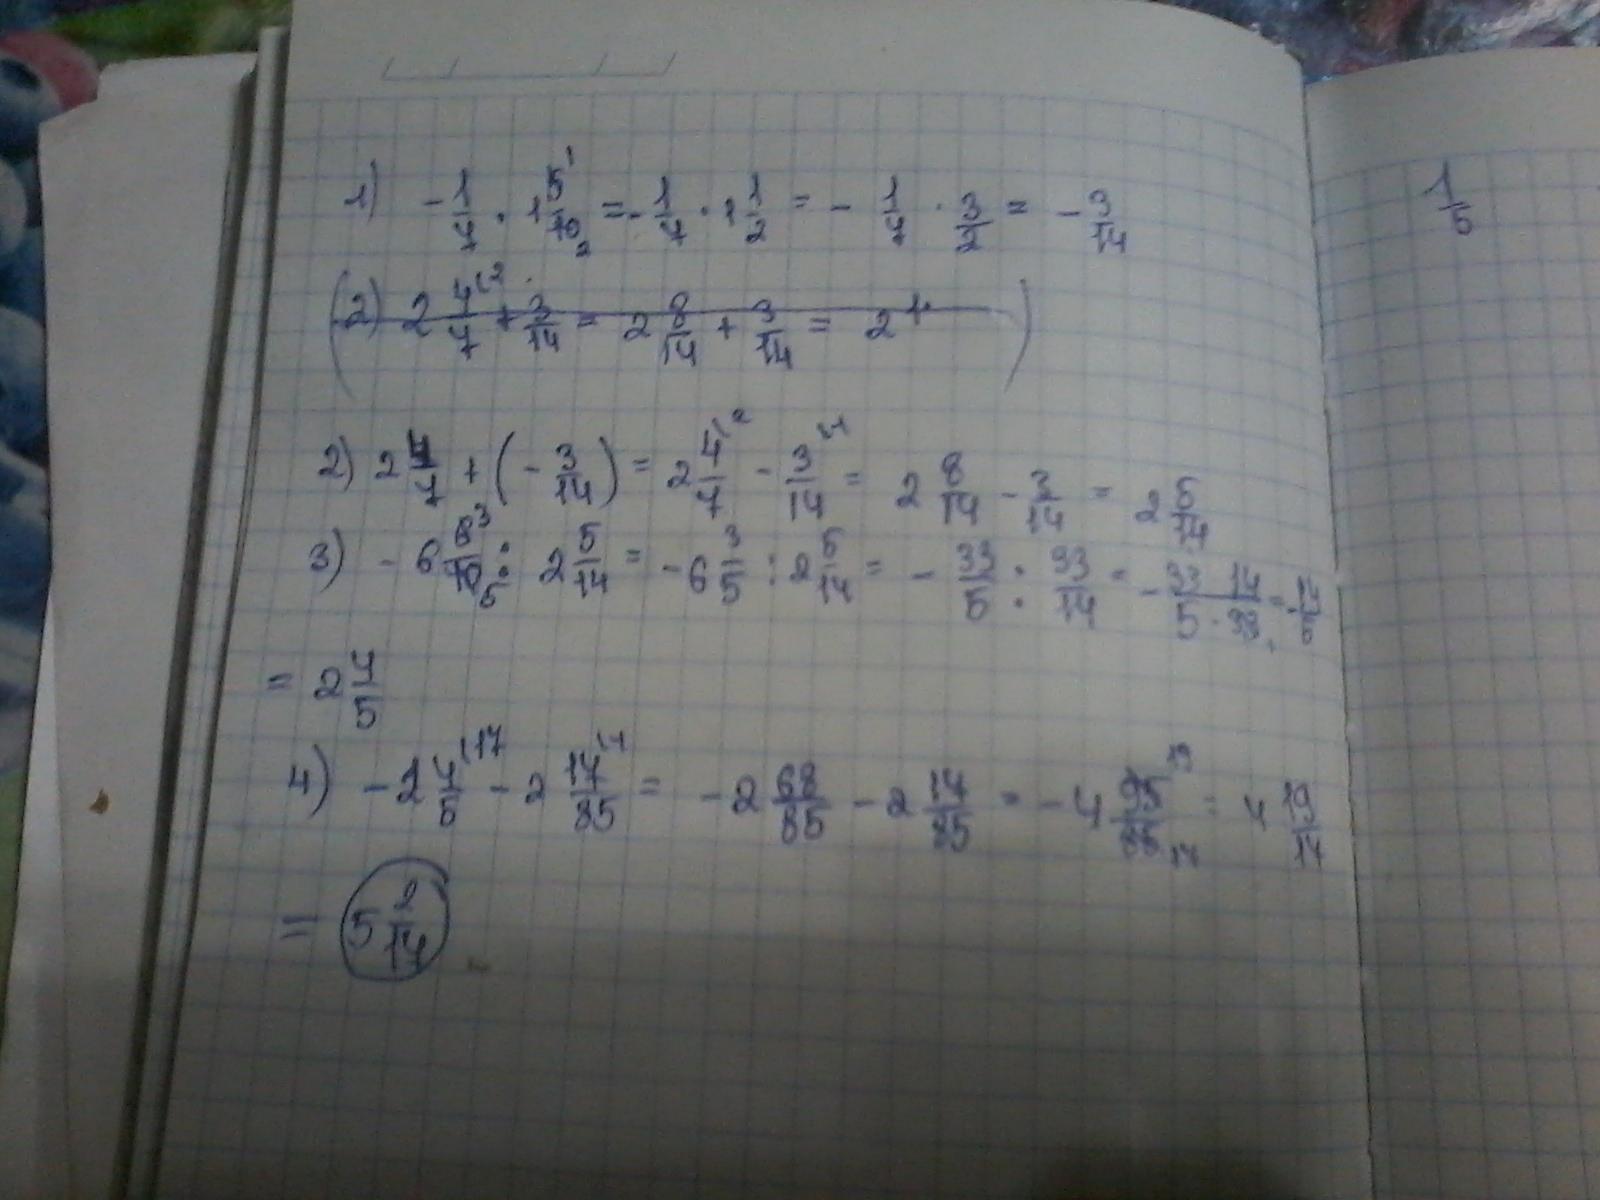 1) - 1/7 · 1 5/10 = - 1/7 · 1 1/2 = - 1/7 · 3/2 = - 3/14
1/5
(2) 2 4/7 + 3/14 = 2 8/14 + 3/14 = 2
2) 2 4/7 + (- 3/14) = 2 4/7 - 3/14 = 2 8/14 - 3/14 = 2 5/14
3) - 6 6/10 : 2 5/14 = - 6 3/5 : 2 5/14 = - 33/5 : 33/14 = - 33 · 14/5 · 33 =
= 2 4/5
4) - 2 4/5 - 2 17/85 = - 2 68/85 - 2 17/85 = - 4 95/85 = 4 19/17
= 5 2/17